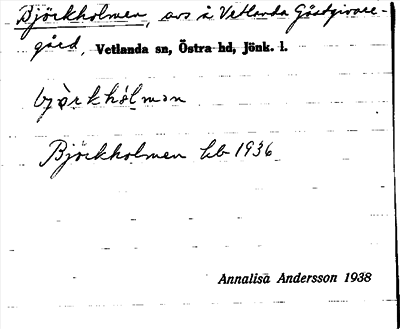 Björkholmen, avs å Vetlanda Gästgivare-
gård, Vetlanda sn, Östra hd, Jönk. l.
bjò̀rkhól̀mən
Björkholmen kb 1936
Annalisa Andersson 1938